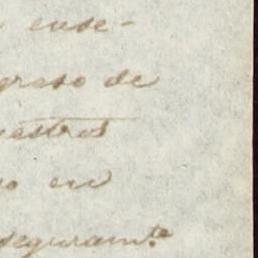 ense-
greso de
nuestros
en
seguram.te